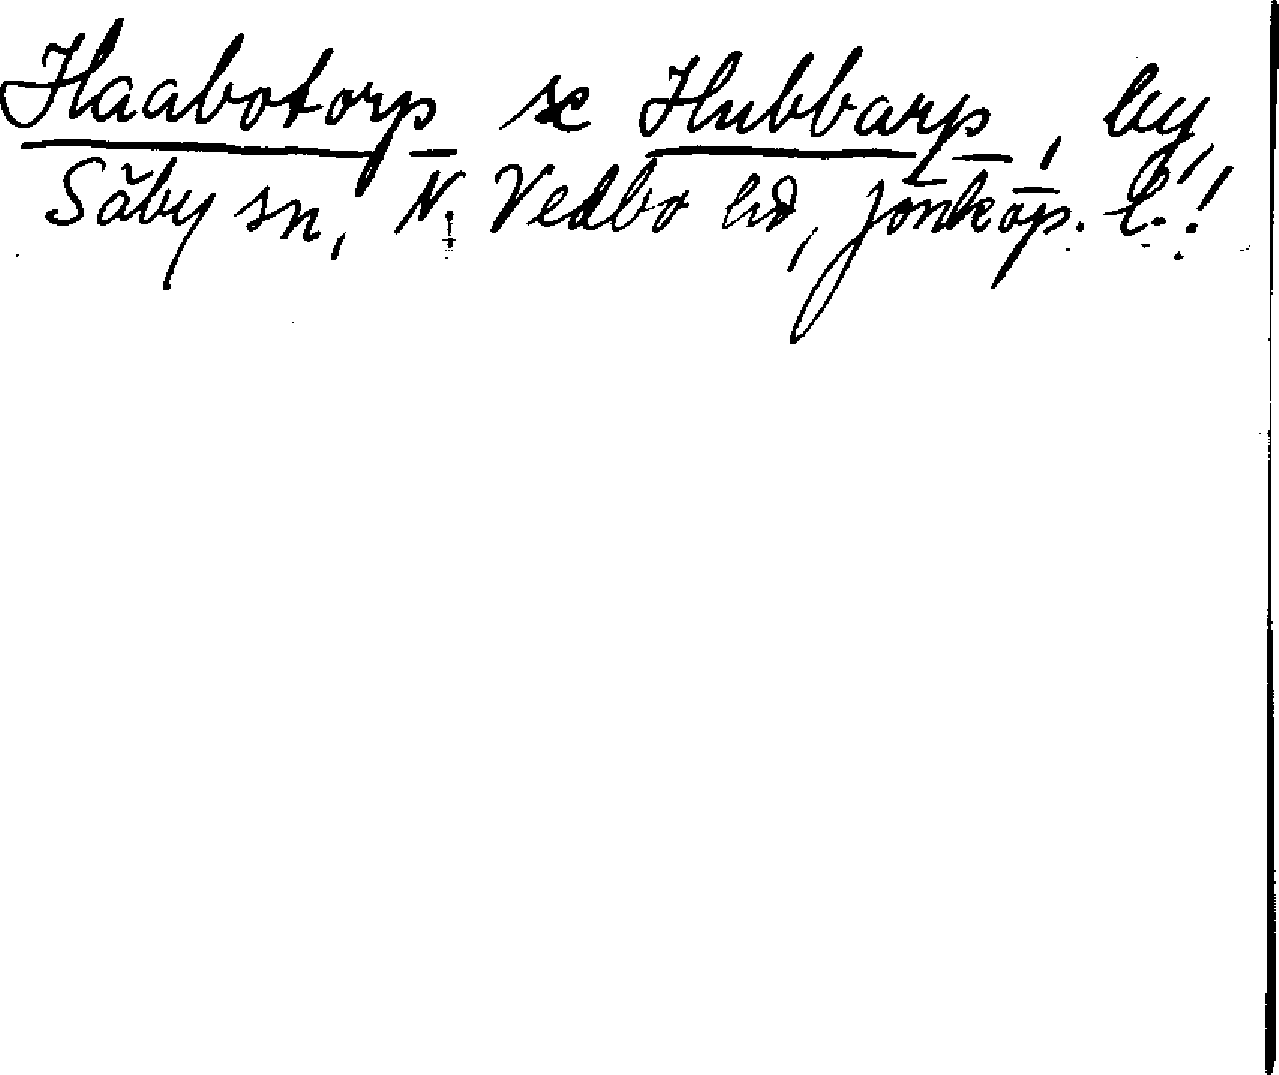 Haabotorp se Hubbarp, by,
Säby sn, N. Vedbo hd, Jönköp. l.!